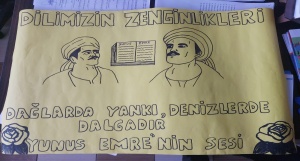 DİLİMİZİN ZENGİNLİKLERİ
DAĞLARDA YANKI, DENİZLERDE
DALGADIR
YUNUS EMRE'NİN SESİ